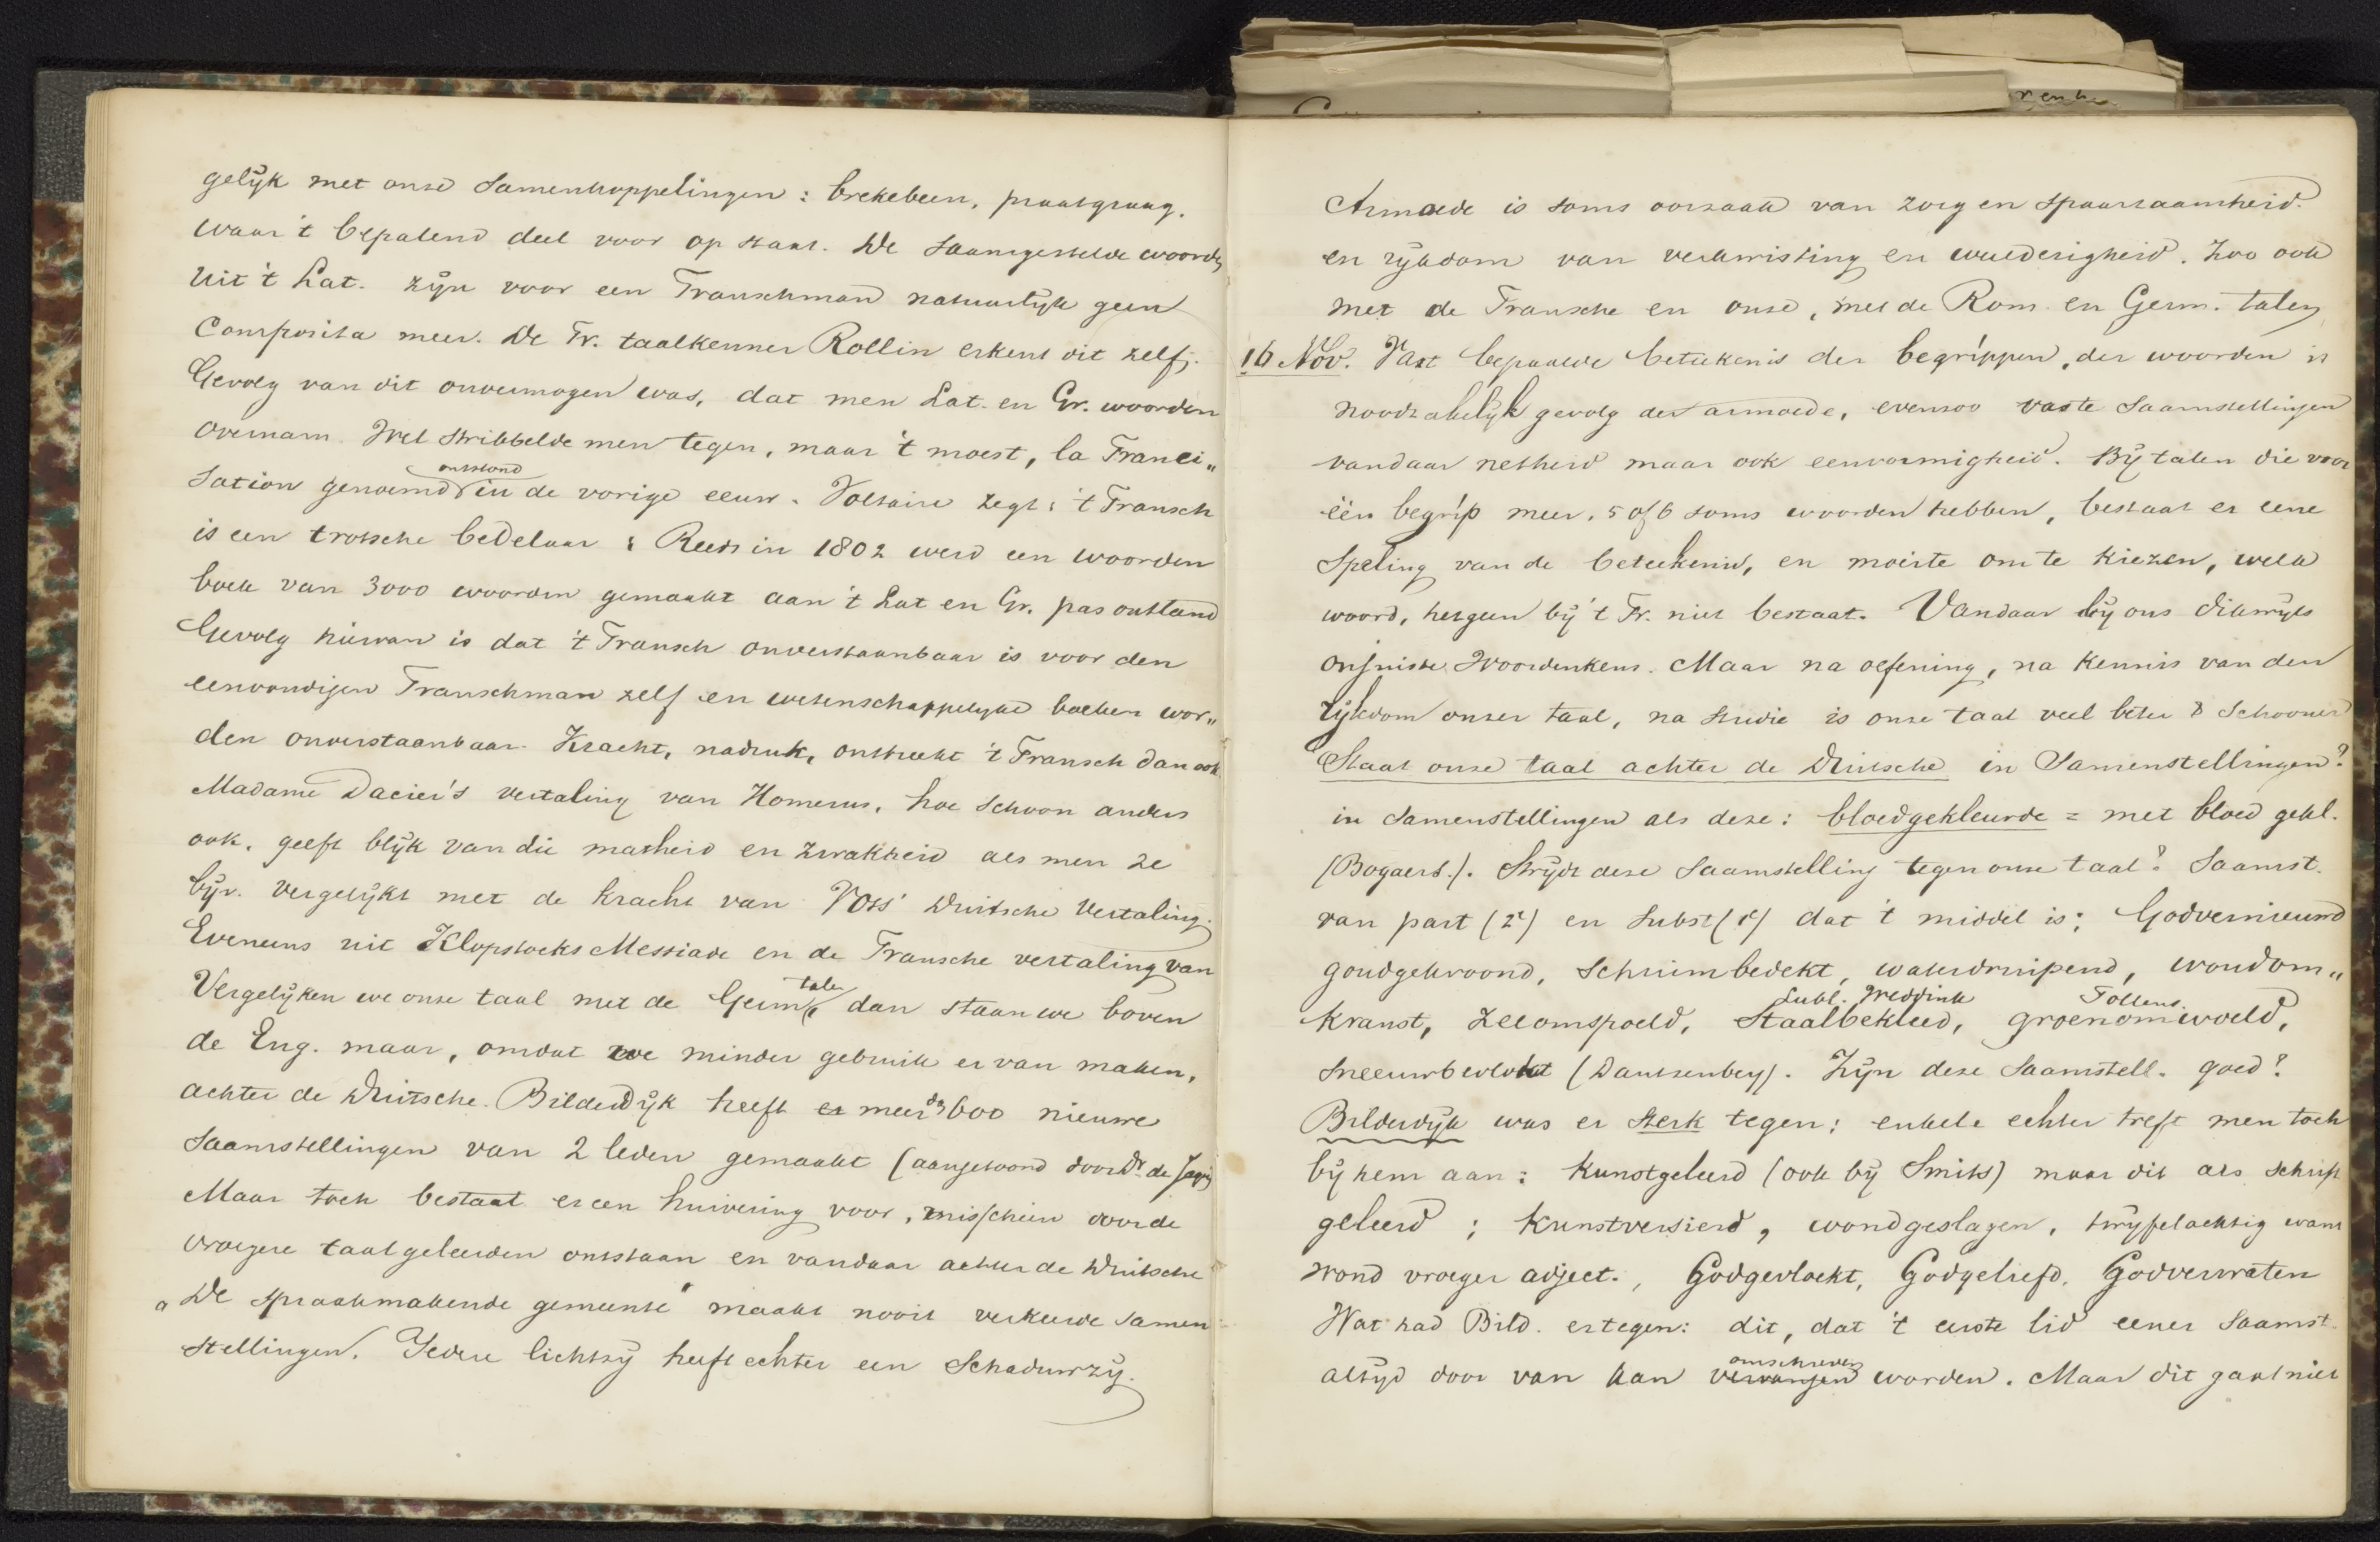 gelijk met onze samenkoppelingen: brekebeen, praatgraag.
waar 't bepalend deel voor op staat. De saamgestelde woorden
uit 't Lat. zijn voor een Franschman natuurlijk geen
Composita meer. De Fr. taalkenner Rollin erkent dit zelf.
Gevolg van dit onvermogen was, dat men Lat. en Gr. woorden
overnam. Wel stribbelde men tegen, maar 't moest, la Franci„
ontstond
sation genoemd in de vorige eeuw. Voltaire zegt: 't Fransch
is een trotsche bedelaar: Reeds in 1802 werd een woorden
boek van 3000 woorden gemaakt aan 't Lat en Gr. pas ontleend
Gevolg hiervan is dat 't Fransch onverstaanbaar is voor den
eenvoudigen Franschman zelf en wetenschappelijke boeken wor„
den onverstaanbaar. Kracht, nadruk, ontbreekt 't Fransch dan ook
Madame Dacier's vertaling van Homerus, hoe schoon anders
ook, geeft blijk van die matheid en zwakheid als men ze
bijv. vergelijkt met de kracht van Voss' Duitsche Vertaling.
Eveneens uit Klopstocks Messiade en de Fransche vertaling van
tale
Vergelijken we onze taal met de Germ. dan staan we boven
de Eng. maar, omdat we minder gebruik er van maken,
achter de Duitsche. Bilderdijk heeft er meer dan 600 nieuwe
saamstellingen van 2 leden gemaakt (aangetoond door Dr. de Jager)
Maar toch bestaat er een huivering voor, misschien door de
vroegere taalgeleerden ontstaan en vandaar achter de Duitsche
„De spraakmakende gemeente" maakt nooit verkeerde samen
stellingen. Iedere lichtzij heeft echter een Schaduwzij.
Armoede is soms oorzaak van zorg en spaarzaamheid.
en rijkdom van verkwisting en weelderigheid. Zoo ook
met de Fransche en onze, met de Rom. en Germ. talen
16 Nov. Vast bepaalde beteekenis der begrippen, der woorden is
noodzakelijk gevolg der armoede, evenzoo vaste saamstellingen
vandaar netheid maar ook eenvormigheid. Bij talen die voor
één begrip meer, 5 of 6 soms woorden hebben, bestaat er eene
speling van de beteekenis, en moeite om te kiezen, welk
woord, hetgeen bij 't Fr. niet bestaat. Vandaar bij ons dikwijls
onjuiste Woordenkeus. Maar na oefening, na kennis van den
rijkdom onzer taal, na studie is onze taal veel beter & Schooner
Staat onze taal achter de Duitsche in Samenstellingen?
in samenstellingen als deze: bloedgekleurde = met bloed gekl.
(Bogaers.). Strijdt deze saamstelling tegen onze taal? Saamst.
van part (2e) en subst (1e) dat 't middel is: Godvernieuwd
goudgekroond, schuimbedekt, waterdruipend, woudom„
Lubl. Weddink Tollens.
kranst, zeeomspoeld, Staalbekleed, groenomwoeld,
sneeuwbevlokt (Dautzenberg). Zijn deze saamstell. goed?
Bilderdijk was er sterk tegen: enkele echter treft men toch
bij hem aan: kunstgeleerd (ook bij Smits) maar dit als schrift
geleerd; kunstversierd, wondgeslagen, twijfelachtig want
wond vroeger adject., Godgevloekt, Godgeliefd, Godverwaten
Wat had Bild. er tegen: dit, dat 't eerste lid eener saamst.
omschreven
altijd door van kan vervangen worden. Maar dit gaat niet